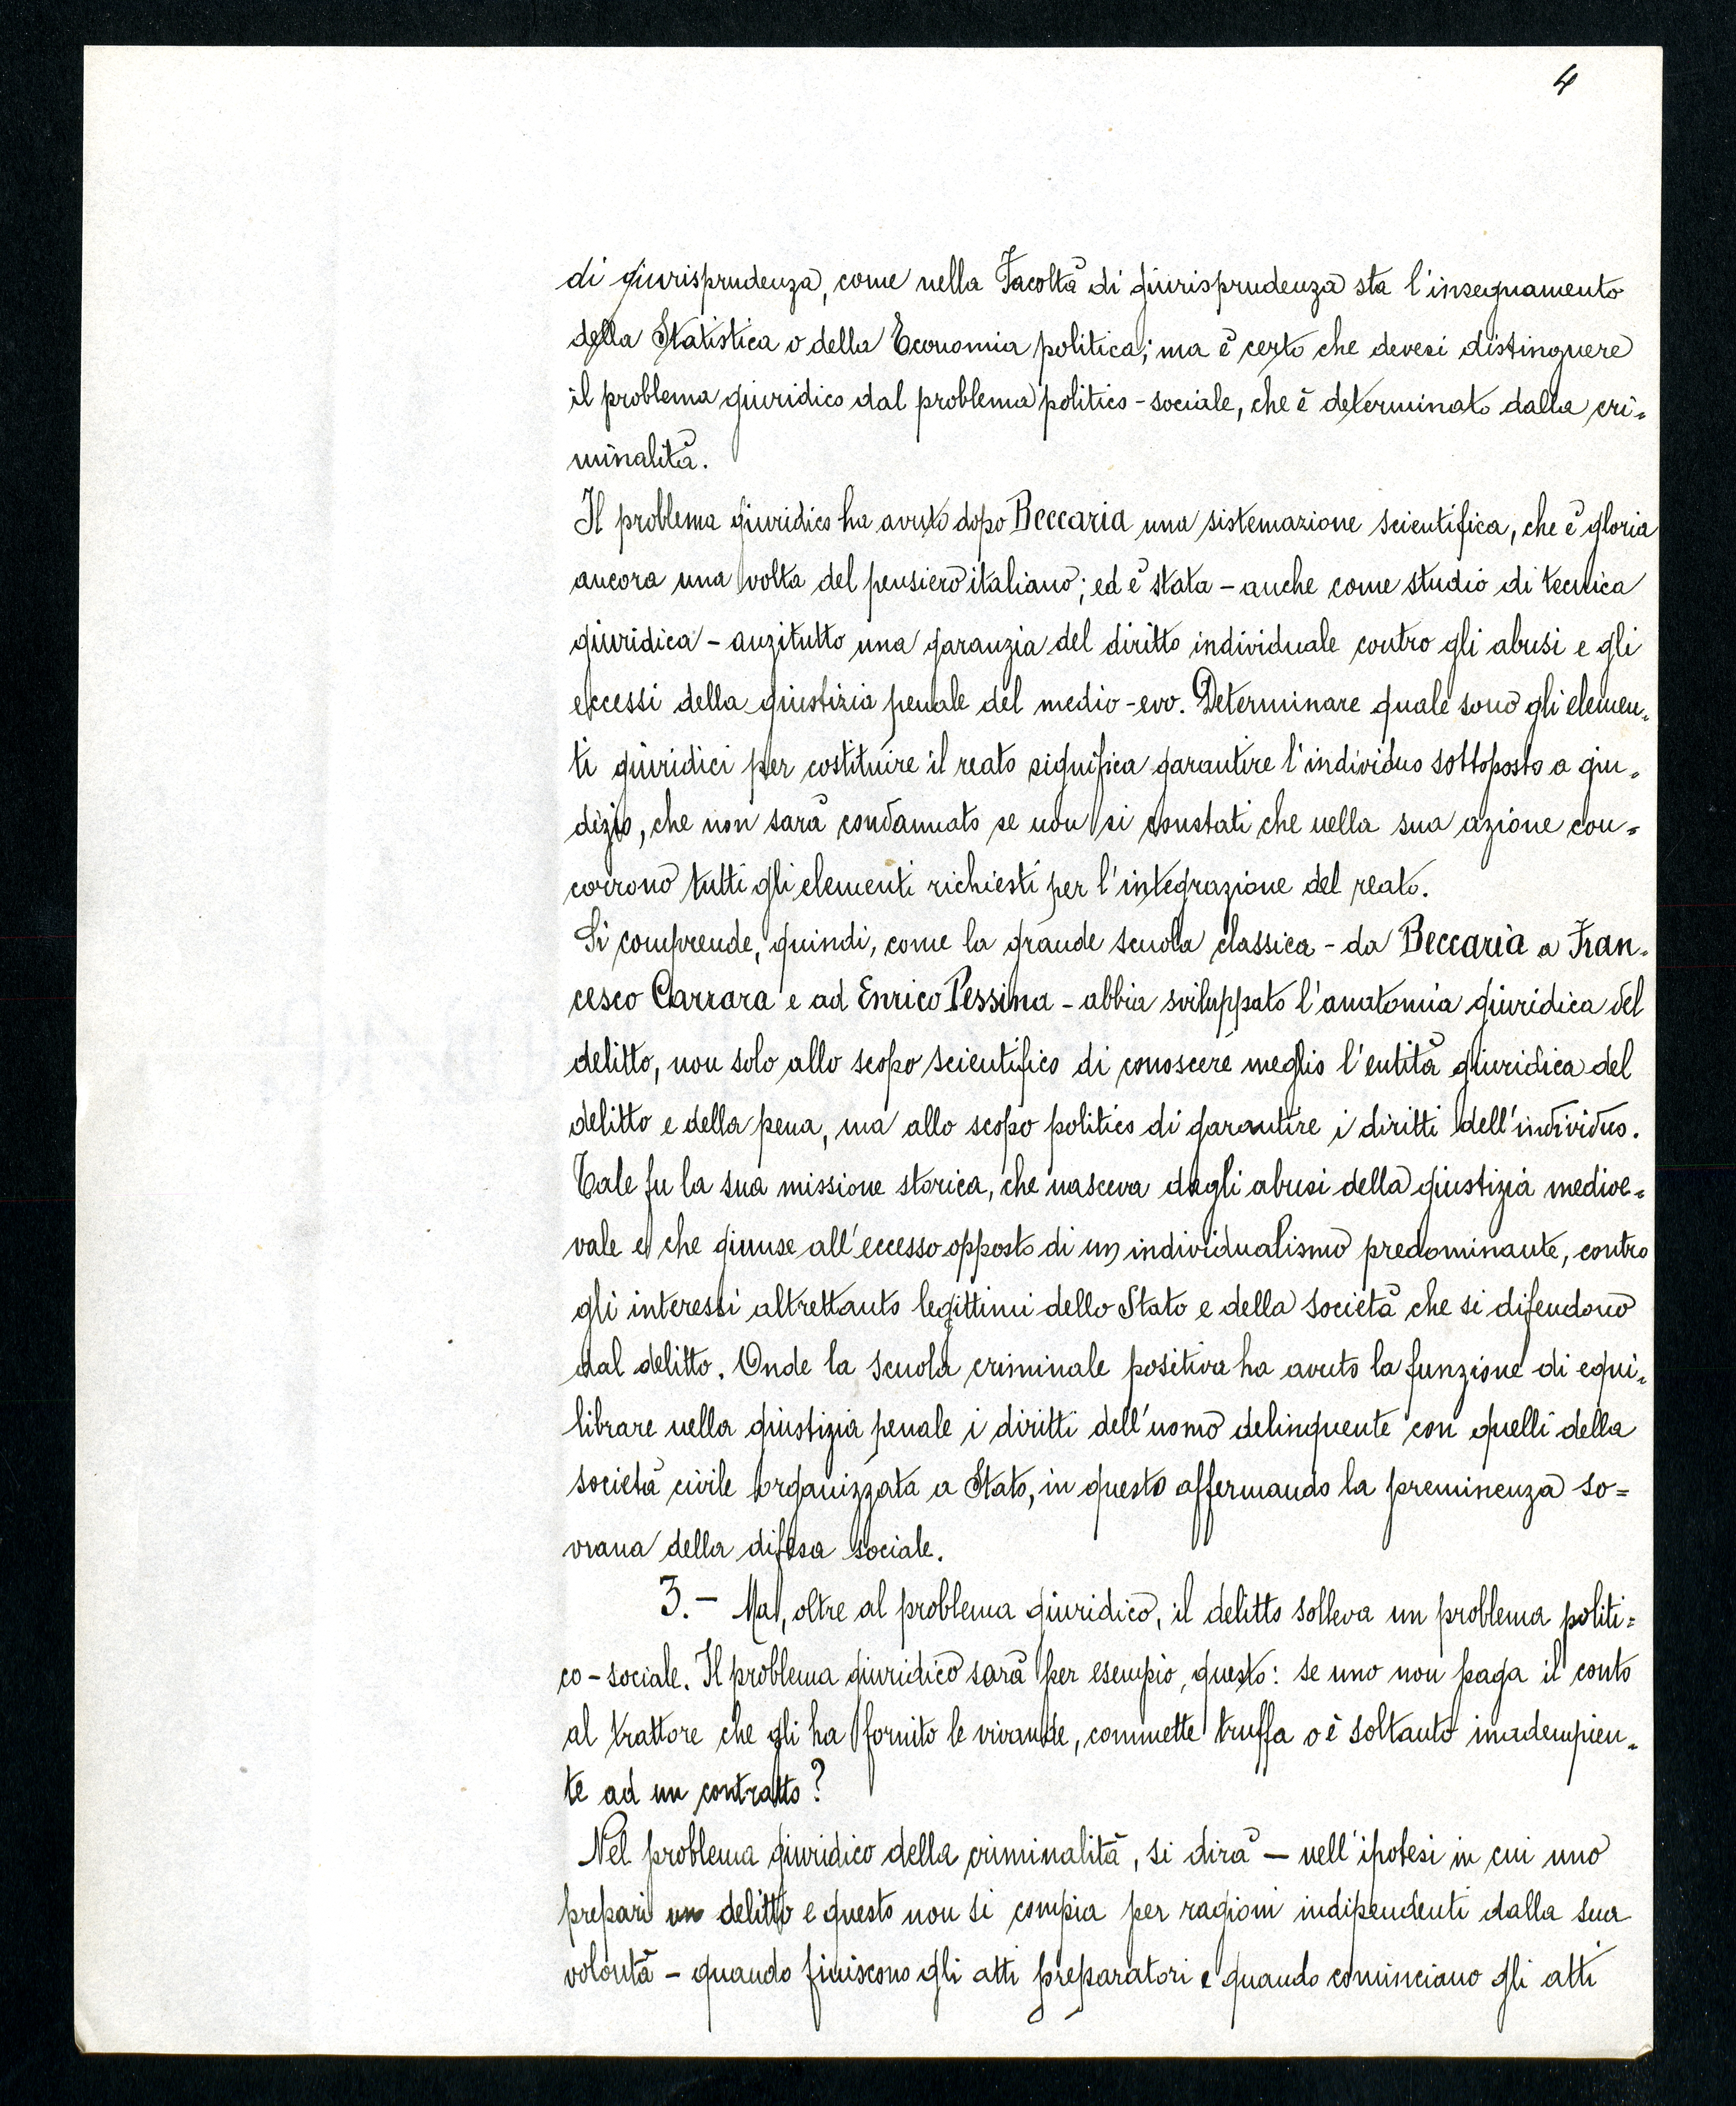 4
di giurisprudenza, come nella Facoltà di giurisprudenza sta l'insegnamento
della Statistica o della Economia politica; ma è certo che devesi distinguere
il problema giuridico dal problema politico-sociale, che è determinato dalla cri=
minalità.
Il problema giuridico ha avuto dopo Beccaria una sistemazione scientifica, che è gloria
ancora una volta del pensiero italiano; ed è stata - anche come studio di tecnica
giuridica - anzitutto una garanzia del diritto individuale contro gli abusi e gli
eccessi della giustizia penale del medio-evo. Determinare quale sono gli elemen=
ti giuridici per costituire il reato significa garantire l'individuo sottoposto a giu=
dizio, che non sarà condannato se non si constati che nella sua azione con=
corrono tutti gli elementi richiesti per l'integrazione del reato.
Si comprende, quindi, come la grande scuola classica - da Beccaria a Fran=
cesco Carrara e ad Enrico Pessina - abbia sviluppato l'anatomia giuridica del
delitto, non solo allo scopo scientifico di conoscere meglio l'entità giuridica del
delitto e della pena, ma allo scopo politico di garantire i diritti dell'individuo.
Tale fu la sua missione storica, che nasceva dagli abusi della giustizia medioe=
vale e che giunse all'eccesso opposto di un individualismo predominante, contro
gli interessi altrettanto legittimi dello Stato e della società che si difendono
dal delitto. Onde la scuola criminale positiva ha avuto la funzione di equi=
librare nella giustizia penale i diritti dell'uomo delinquente con quelli della
società civile organizzata a Stato, in questo affermando la preminenza so=
vrana della difesa sociale.
3.- Ma, oltre al problema giuridico, il delitto solleva un problema politi=
co-sociale. Il problema giuridico sarà per esempio, questo: se uno non paga il conto
al trattore che gli ha fornito le vivande, commette truffa o è soltanto inadempien=
te ad un contratto?
Nel problema giuridico della criminalità, si dirà - nell'ipotesi in cui uno
prepari un delitto e questo non si compia per ragioni indipendenti dalla sua
volontà - quando finiscono gli atti preparatori e quando cominciano gli atti